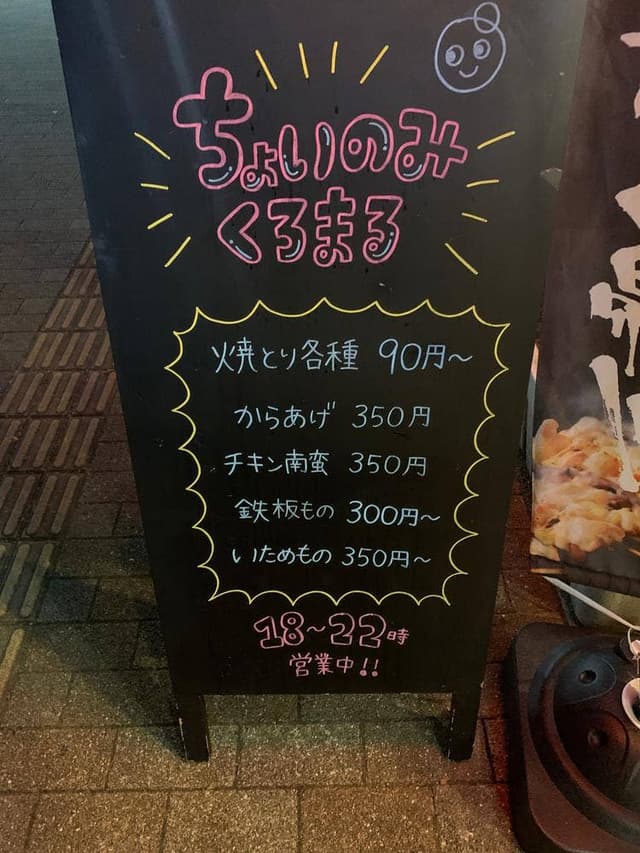 ちょいのみ
くろまる
焼とり各種 90円～
からあげ 350円
チキン南蛮 350円
鉄板もの 300円～
いためもの 350円～
18～22時
営業中!!